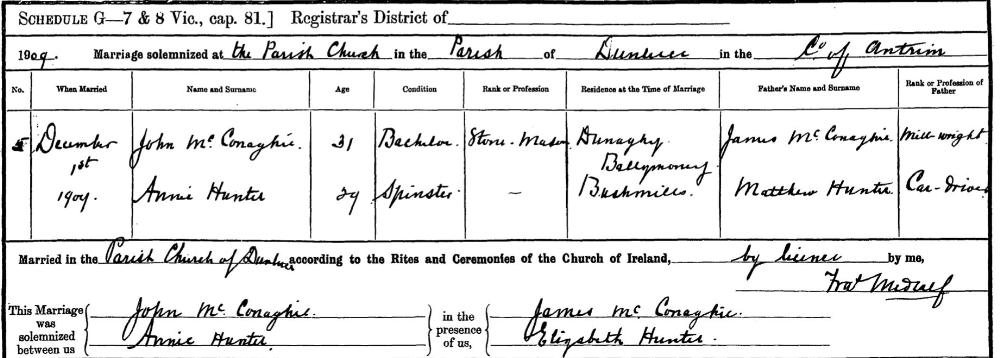 SCHEDULE G—7 & 8 Vic., cap. 81.] Registrar's District of
1909. Marriage solemnized at the Parish Church in the Parish of Dunluce in the Co of Antrim
No. When Married Name and Surname Age Condition Rank or Profession Residence at the Time of Marriage Father's Name and Surname Rank or Profession of Father
5 December John Mc Conaghie. 31 Bachelor Stone-Mason Dunaghy James Mc Conaghie. Mill-wright
1st Ballymoney
1909. Annie Hunter 29 Spinster. — Bushmills. Matthew Hunter. Car-driver
Married in the Parish Church of Dunluce according to the Rites and Ceremonies of the Church of Ireland, by licence by me,
This Marriage was solemnized between us John Mc Conaghie. in the presence of us, James Mc Conaghie.
Annie Hunter. Elizabeth Hunter.